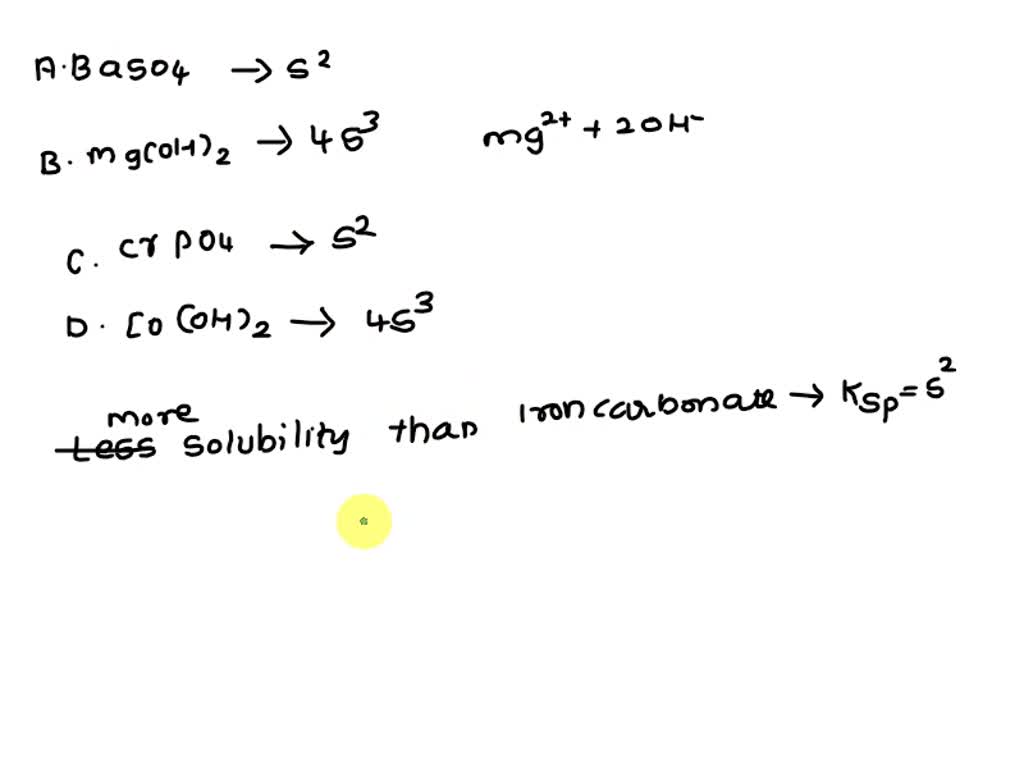 A. BaSO4 → s²
B. Mg(OH)2 → 4s³ Mg²⁺ + 2OH⁻
C. CrPO4 → s²
D. Co(OH)2 → 4s³
more
Less solubility than Iron carbonate → Ksp = s²